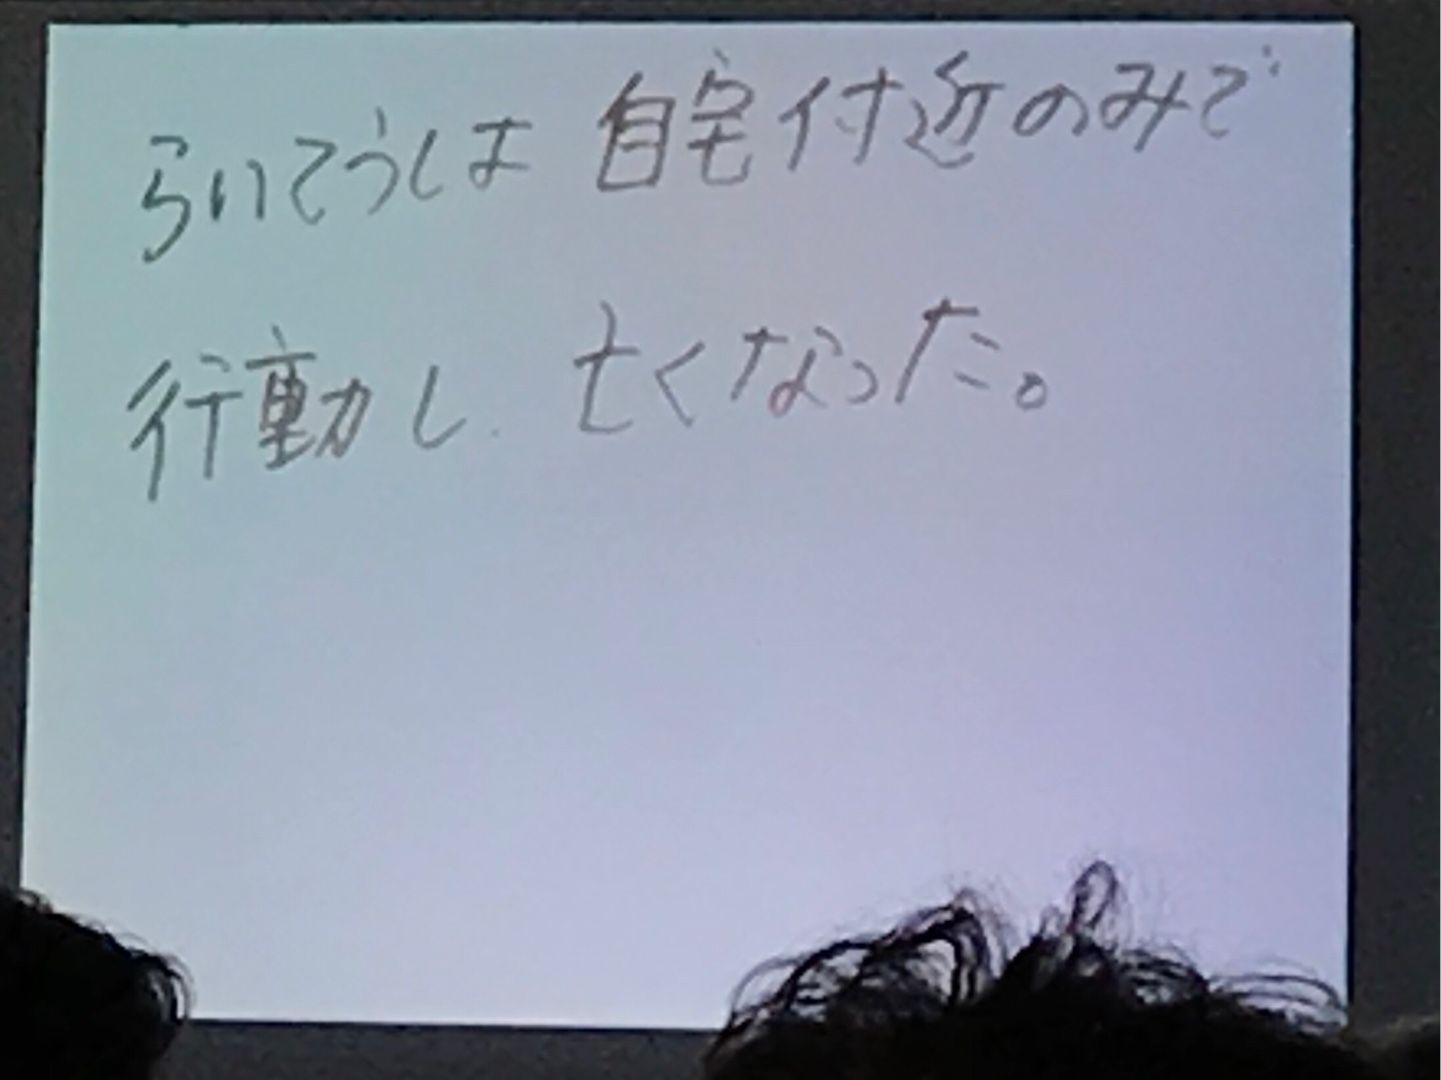 らいてうは 自宅付近のみで
行動し、亡くなった。